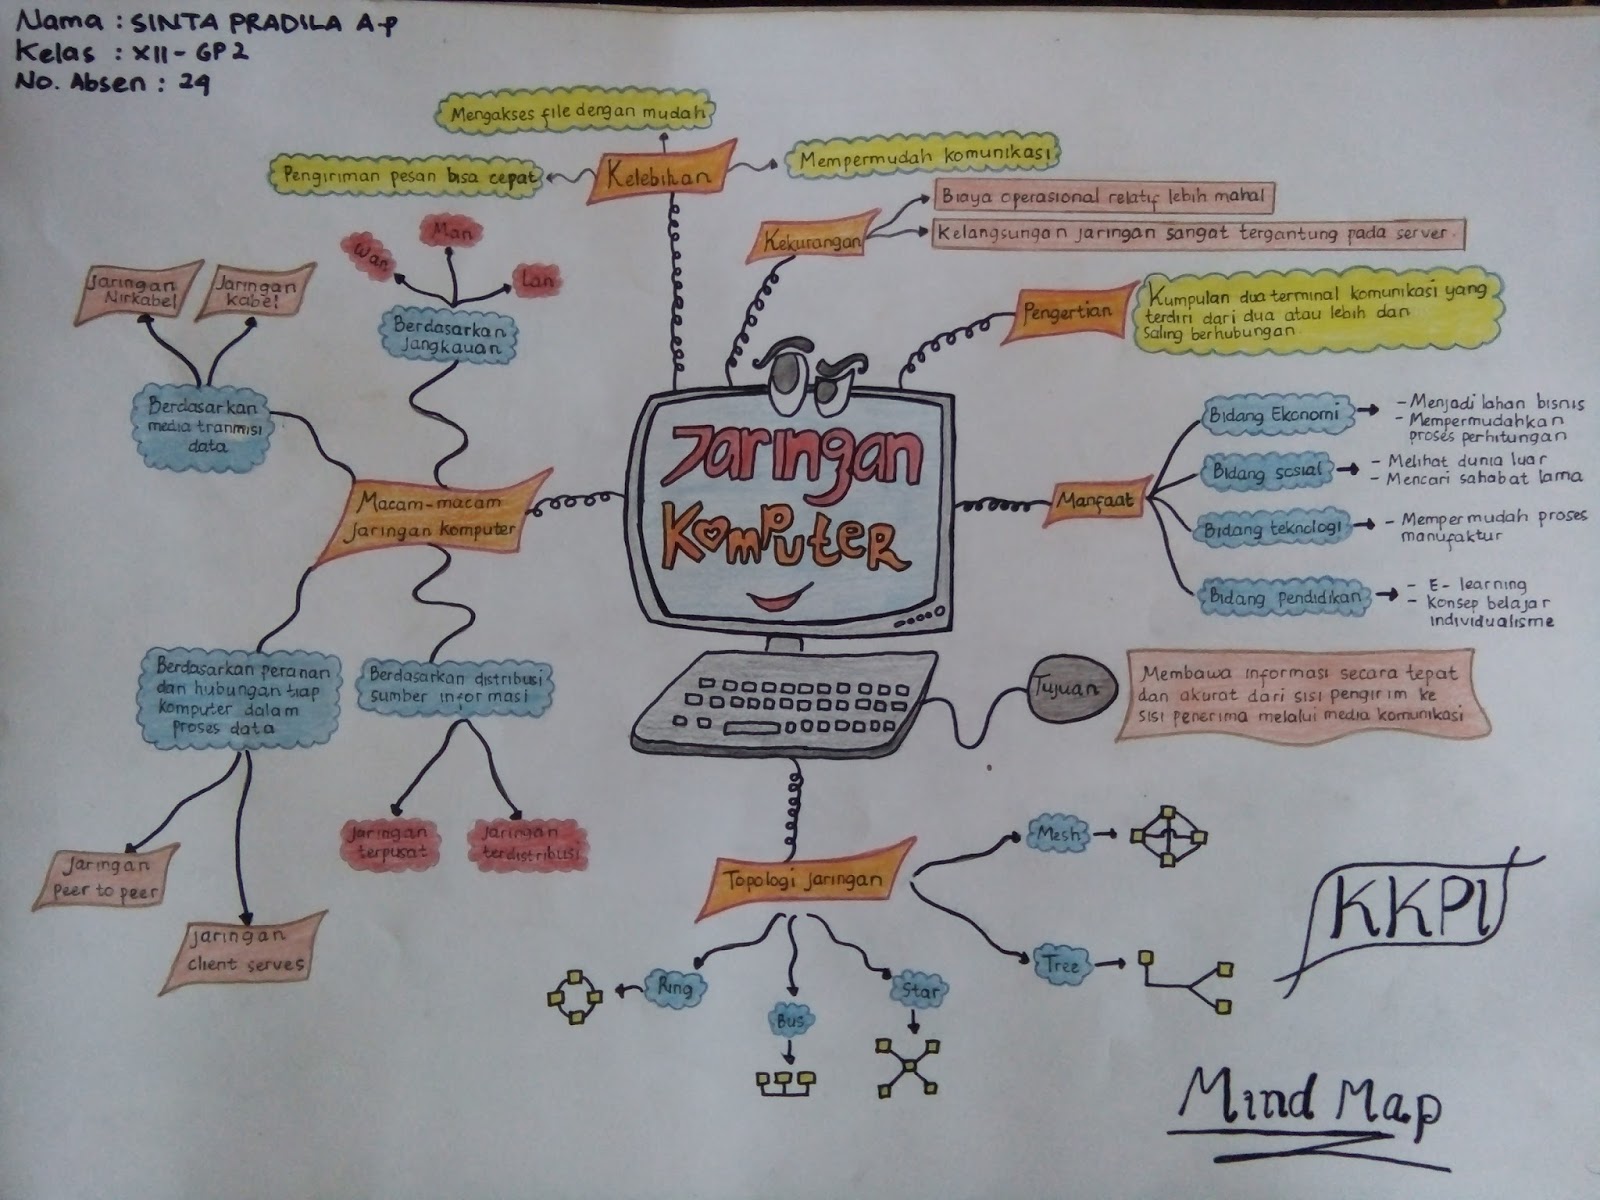 Nama : SINTA PRADILA A.P
Kelas : XII - GP 2
No. Absen : 29
Mengakses file dengan mudah
Pengiriman pesan bisa cepat
Kelebihan
Mempermudah komunikasi
Kekurangan
Biaya operasional relatif lebih mahal
Kelangsungan jaringan sangat tergantung pada server.
Pengertian
Kumpulan dua terminal komunikasi yang
terdiri dari dua atau lebih dan
saling berhubungan.
Wan
Man
Lan
Berdasarkan
Jangkauan
Jaringan
Nirkabel
Jaringan
kabel
Berdasarkan
media tranmisi
data
Macam-macam
Jaringan komputer
Jaringan
Komputer
Manfaat
Bidang Ekonomi
- Menjadi lahan bisnis
- Mempermudahkan
proses perhitungan
Bidang sosial
- Melihat dunia luar
- Mencari sahabat lama
Bidang teknologi
- Mempermudah proses
manufaktur
Bidang pendidikan
- E-learning
- Konsep belajar
individualisme
Berdasarkan peranan
dan hubungan tiap
komputer dalam
proses data
Berdasarkan distribusi
sumber informasi
Tujuan
Membawa informasi secara tepat
dan akurat dari sisi pengirim ke
sisi penerima melalui media komunikasi
Jaringan
terpusat
Jaringan
terdistribusi
Jaringan
peer to peer
Jaringan
client serves
Topologi Jaringan
Mesh
Tree
Ring
Bus
Star
KKPI
Mind Map